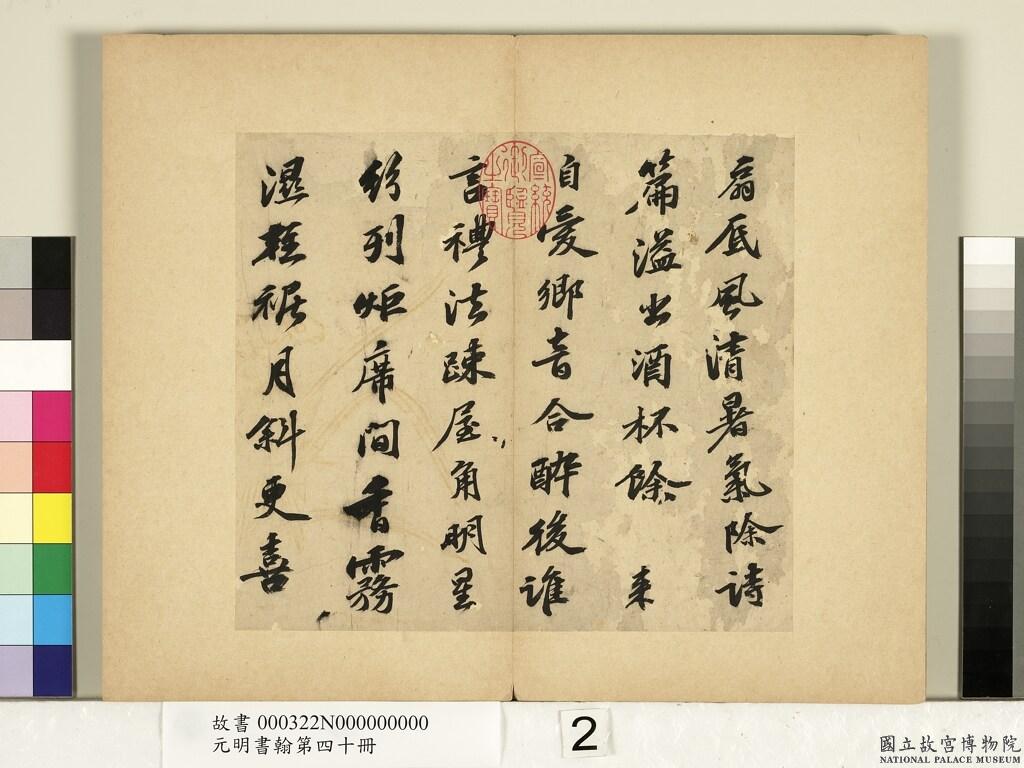 扇底風清暑氣除詩
篇溢出酒杯餘　来
自愛鄉音合醉後誰
言禮法踈屋角明星
紛列炬席間香霧
濕輕裾月斜更喜
宣統御覽之寶
故書 000322N000000000
元明書翰第四十冊
2
國立故宮博物院
NATIONAL PALACE MUSEUM